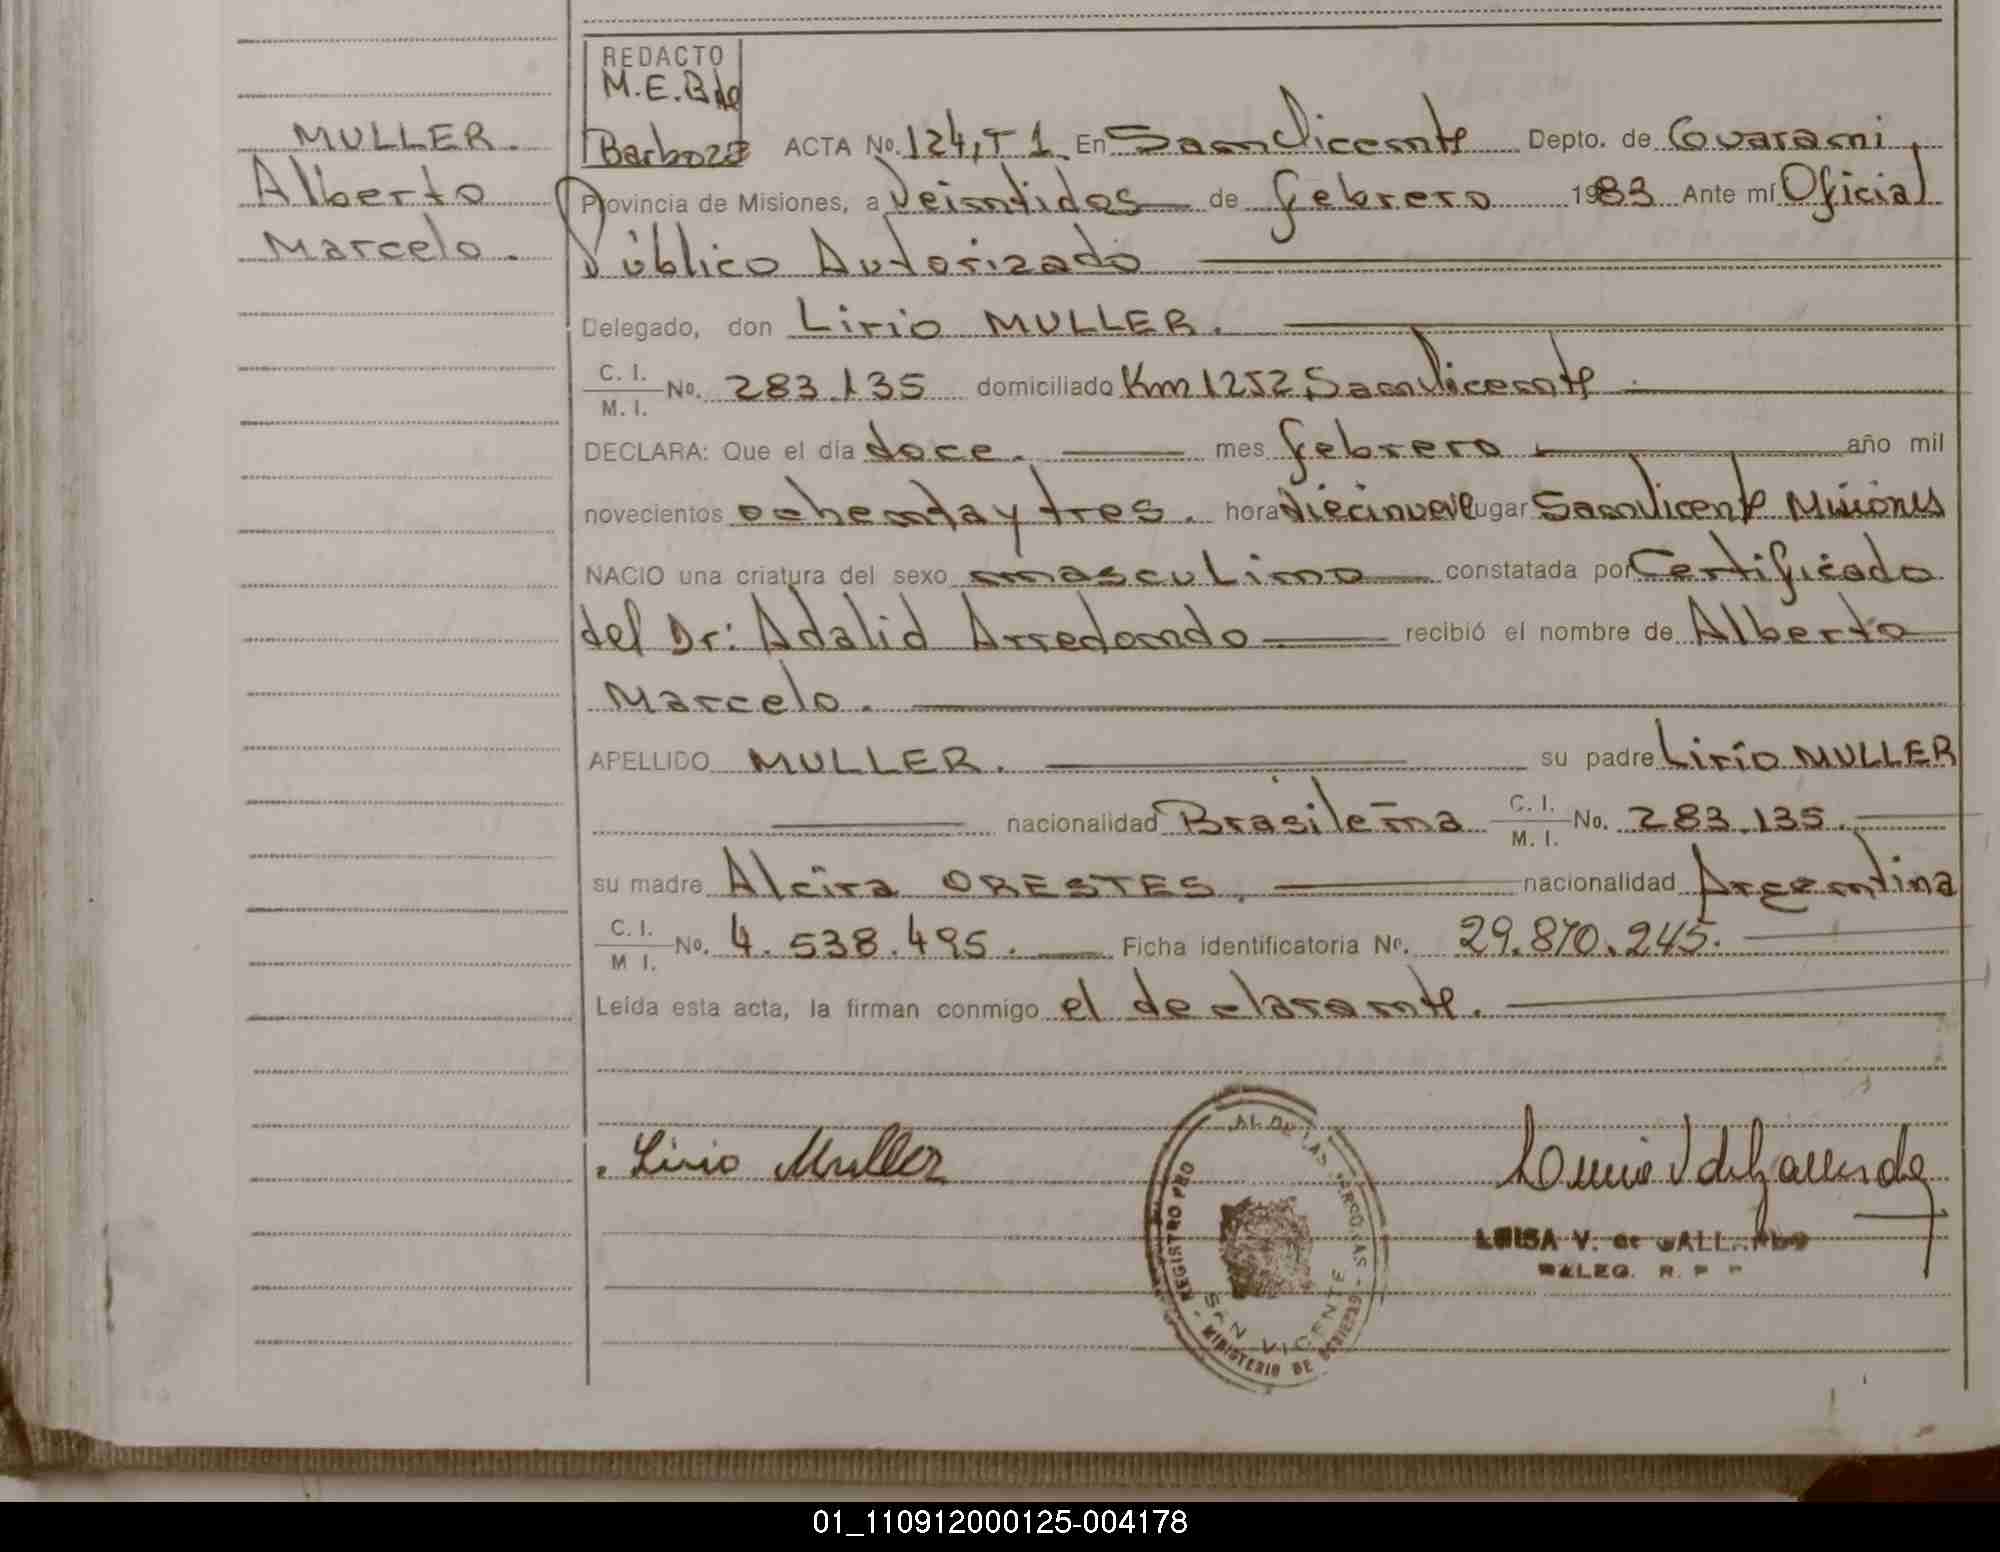 REDACTO
M.E.B de
Barboza
MULLER.
Alberto
Marcelo.
ACTA No. 124, T 1 En San Vicente Depto. de Guarani,
Provincia de Misiones, a Veintidos de febrero 1983 Ante mí Oficial
Público Autorizado
Delegado, don Lirio MULLER.
C. I.
M. I. No. 283.135 domiciliado Km 1252 San Vicente
DECLARA: Que el día doce. mes febrero año mil
novecientos ochenta y tres. hora diecinueve lugar San Vicente Misiones
NACIO una criatura del sexo masculino constatada por Certificado
del Dr: Adalid Arredondo recibió el nombre de Alberto
Marcelo.
APELLIDO MULLER. su padre Lirio MULLER
nacionalidad Brasileña C. I. M. I. No. 283.135.
su madre Alcira ORESTES, nacionalidad Argentina
C. I. M I. No. 4.538.495. Ficha identificatoria No. 29.870.245.
Leída esta acta, la firman conmigo el declarante.
Lirio Muller
REGISTRO PRO
AL DE LAS
SAN VICENTE
MINISTERIO DE
LUISA V. de GALLARDO
DELEG. R. P. P
01_110912000125-004178